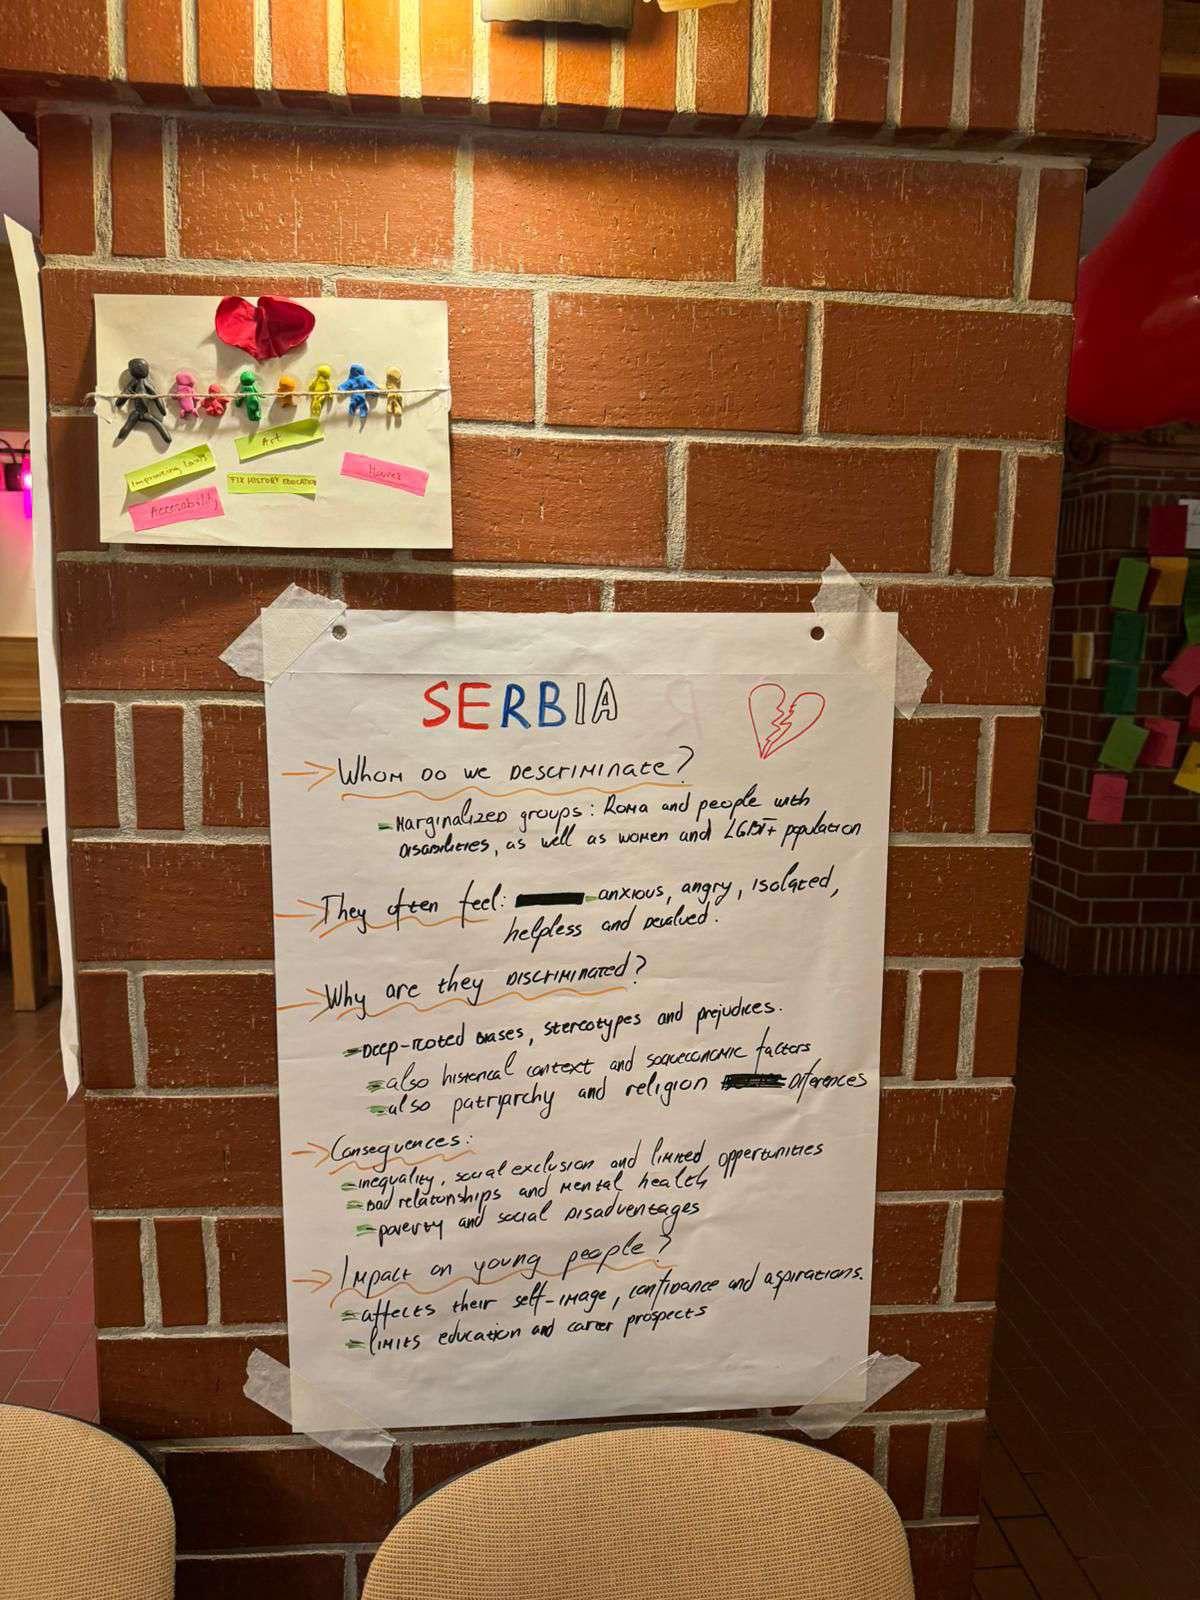 Art
Improving laws
FIX HISTORY EDUCATION
Accesability
SERBIA
Whom do we descriminate?
- Marginalized groups: Roma and people with
disabilities, as well as women and LGBT+ population
They often feel: - anxious, angry, isolated,
helpless and devalued.
Why are they discriminated?
- Deep-rooted biases, stereotypes and prejudices.
- also historical context and socioeconomic factors
- also patriarchy and religion diferences
Consequences:
- inequality, social exclusion and limited opportunities
- bad relationships and mental health
- poverty and social disadventages
Impact on young people?
- affects their self-image, confidance and aspirations.
- limits education and career prospects